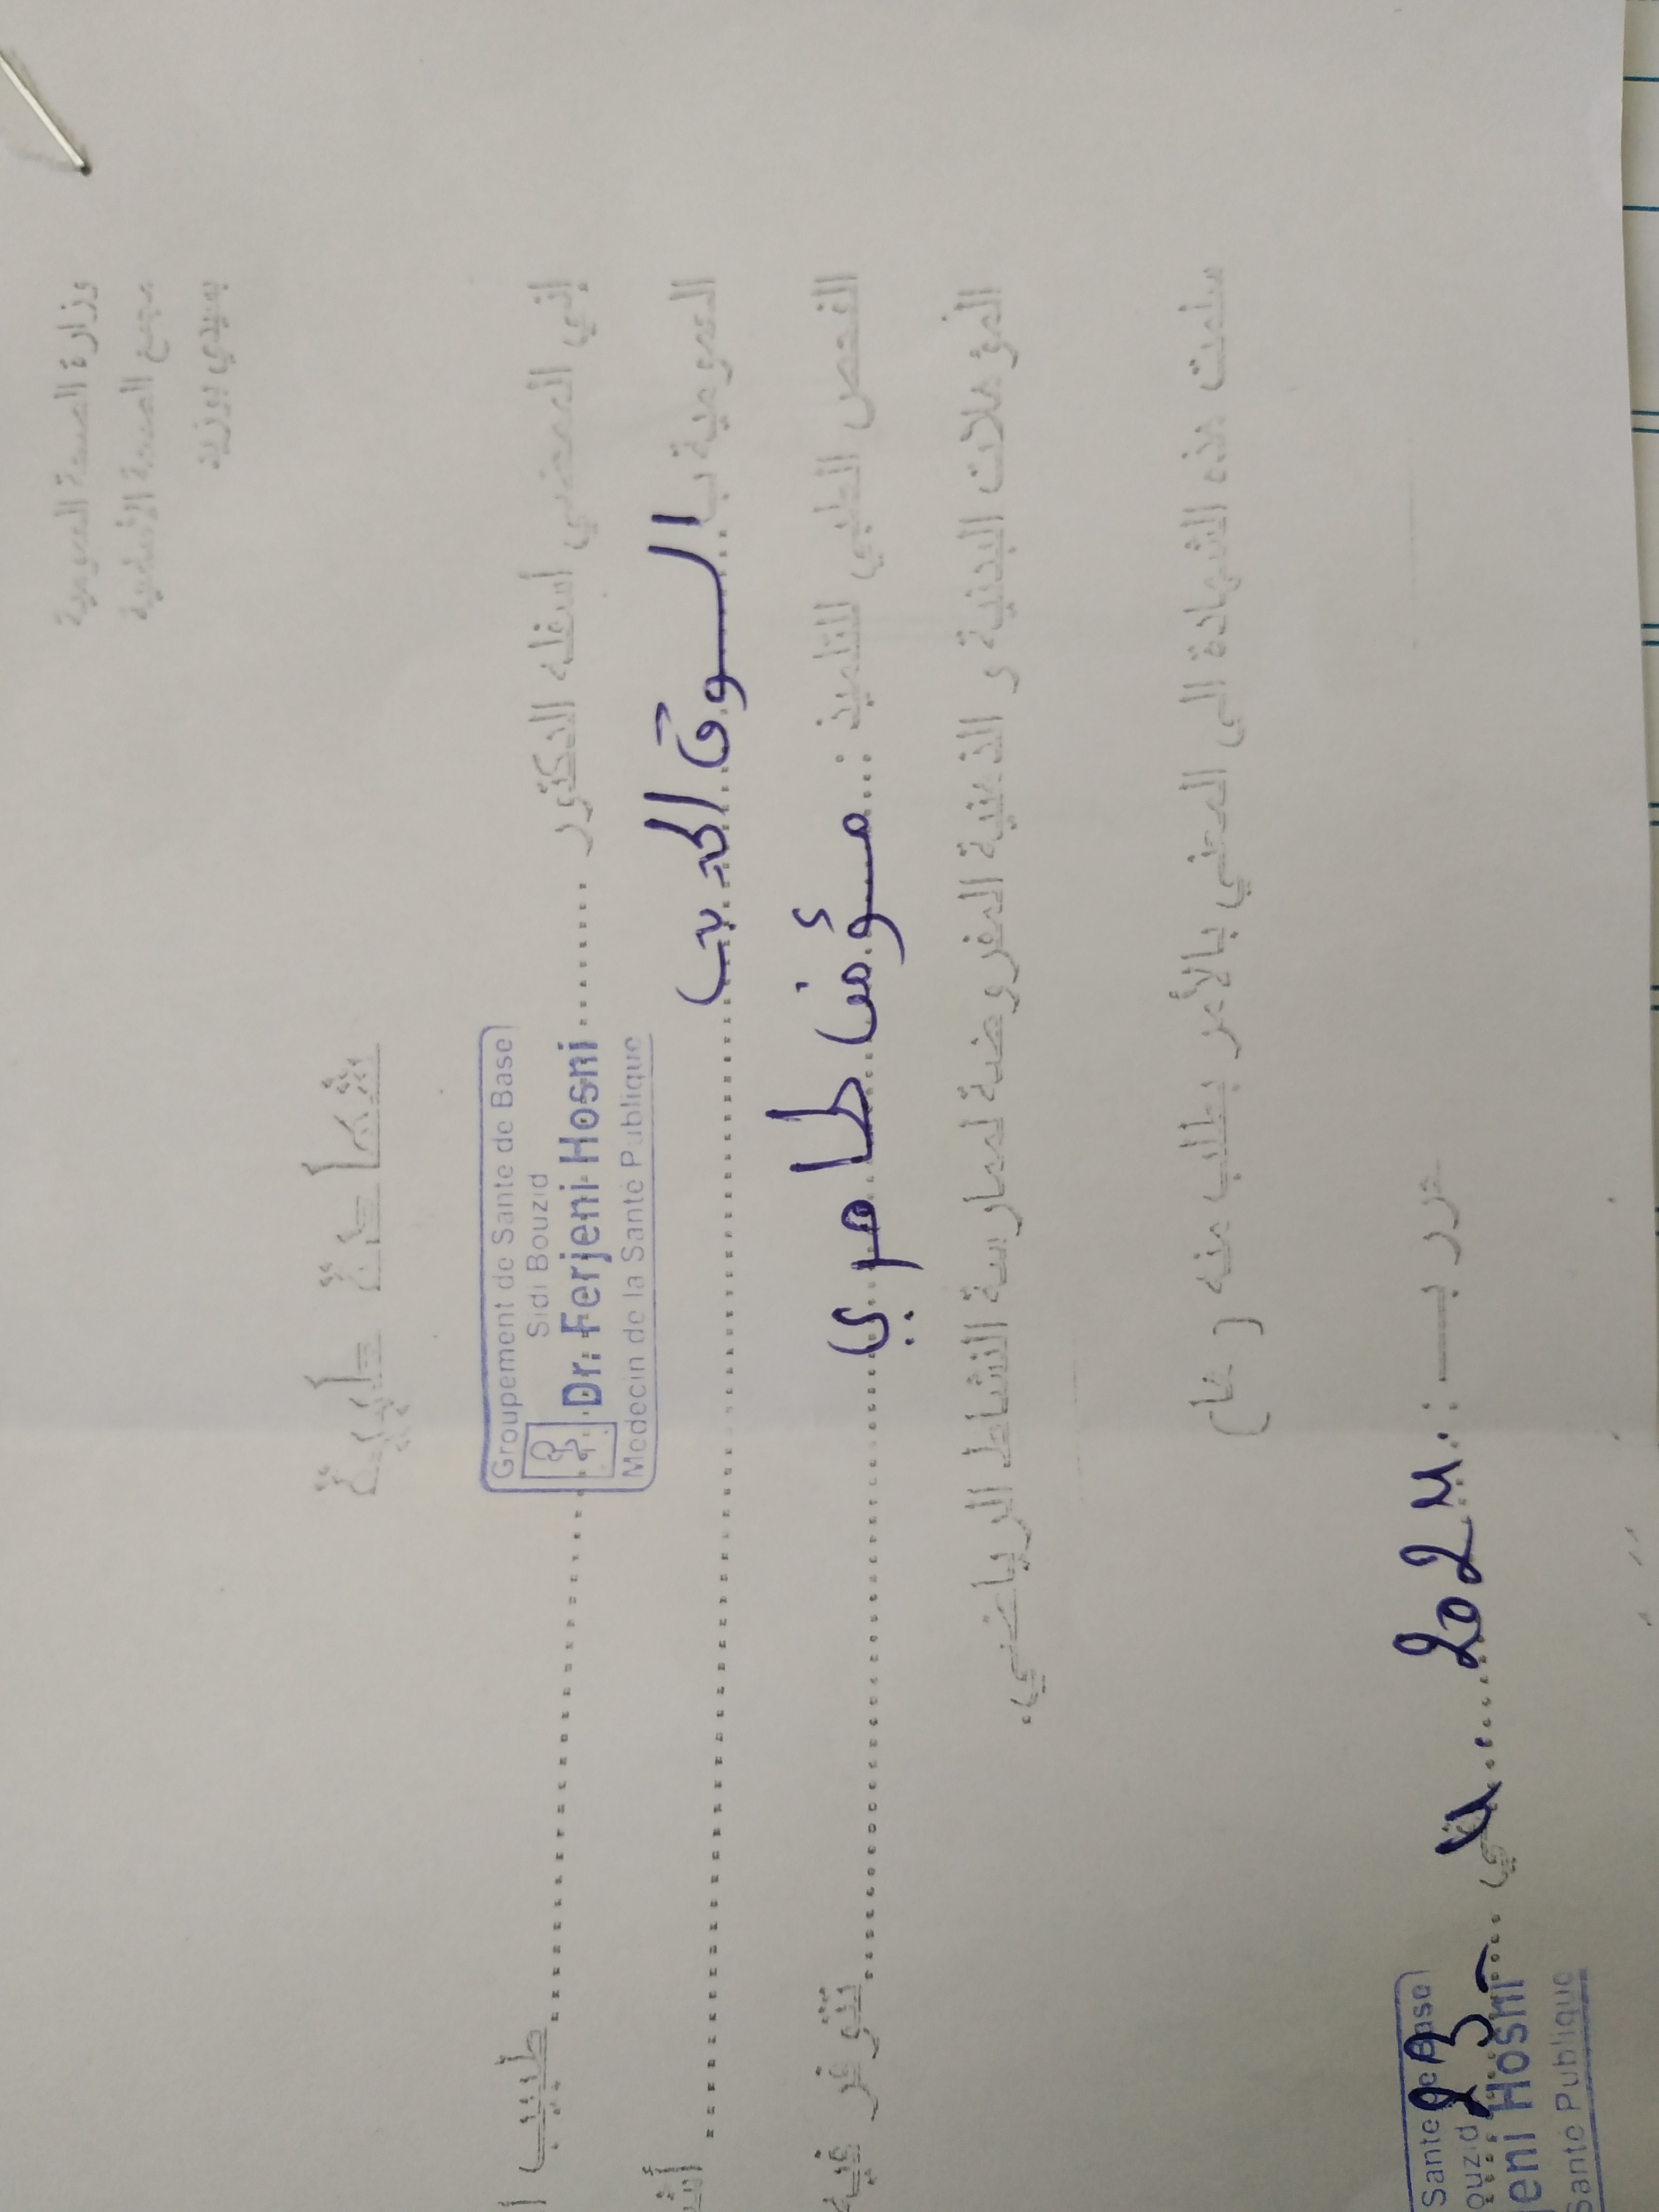 وزارة الصحة العمومية
مجمع الصحة الأساسية
بسيدي بوزيد
شهادة طبية
إني الممضي أسفله الدكتور ........ طبيب
Groupement de Sante de Base
Sidi Bouzid
Dr. Ferjeni Hosni
Medecin de la Santé Publique
العمومية ب السوق الجديد
الفحص الطبي للتلميذ : مؤمن طاهري تتوفر فيه
المؤهلات البدنية و الذهنية المفروضة لممارسة النشاط الرياضي.
سلمت هذه الشهادة إلى المعني بالأمر بطلب منه
حرر بـ : في
Sante de Base
ouzid
eni Hosni
Santé Publique